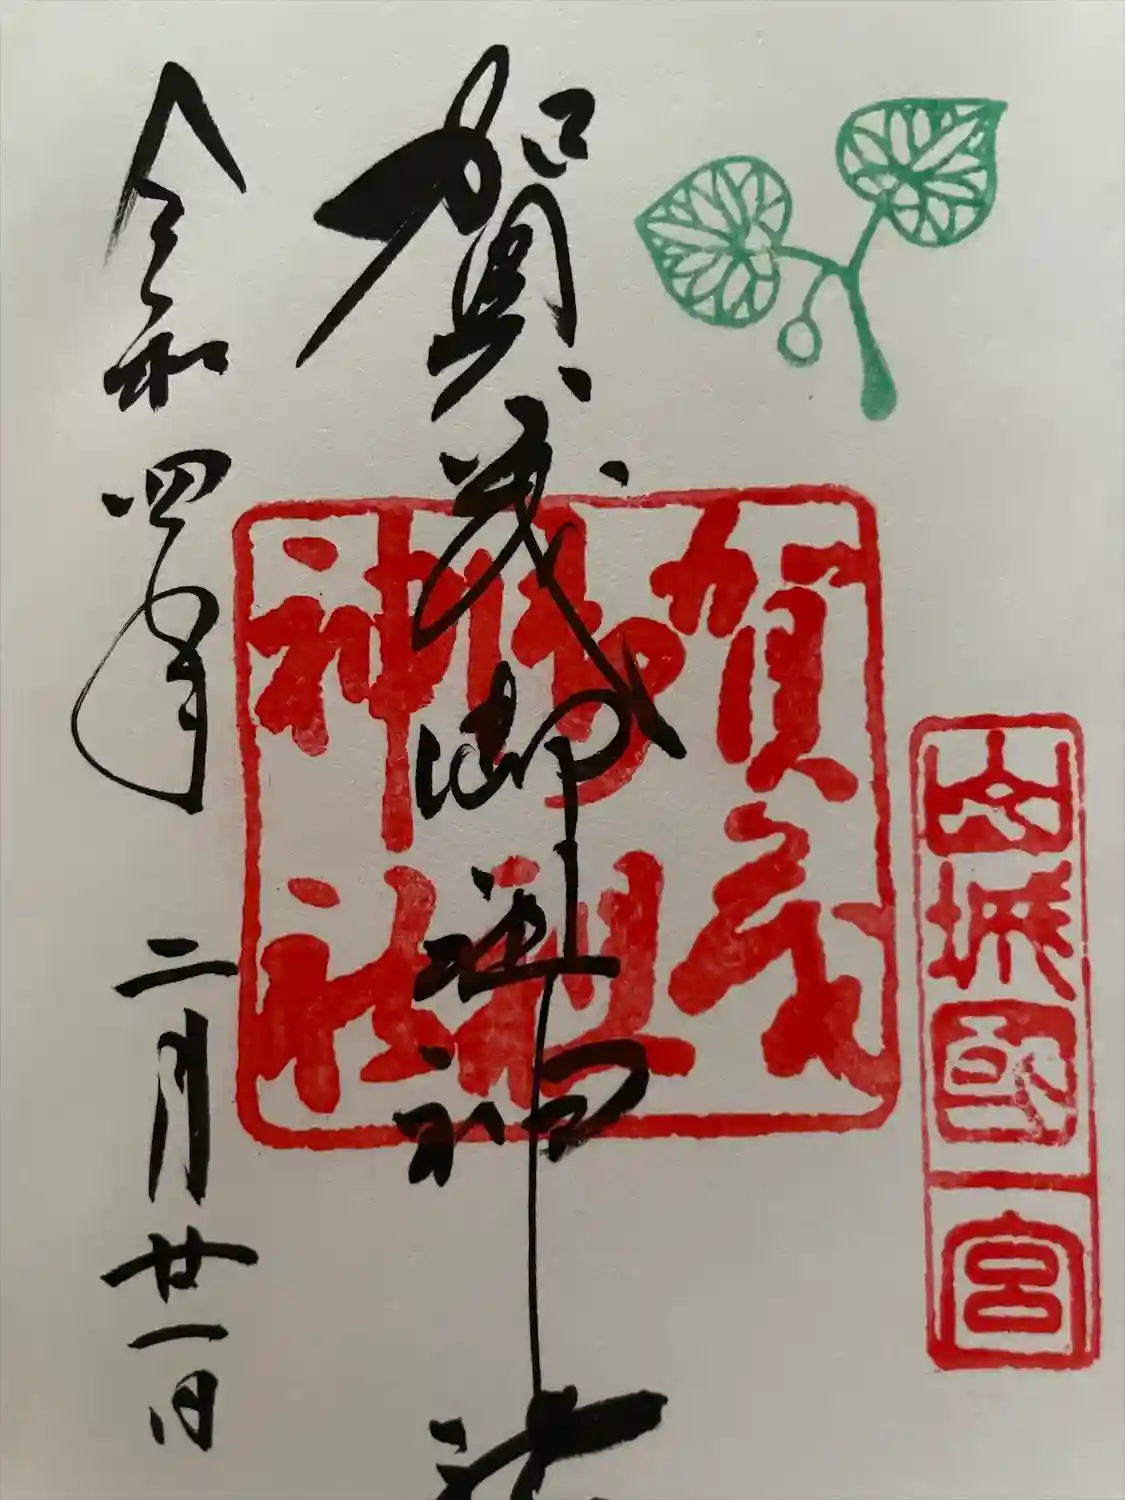 山城國一宮
賀茂御祖神社
賀茂御祖神社
令和四年二月廿一日